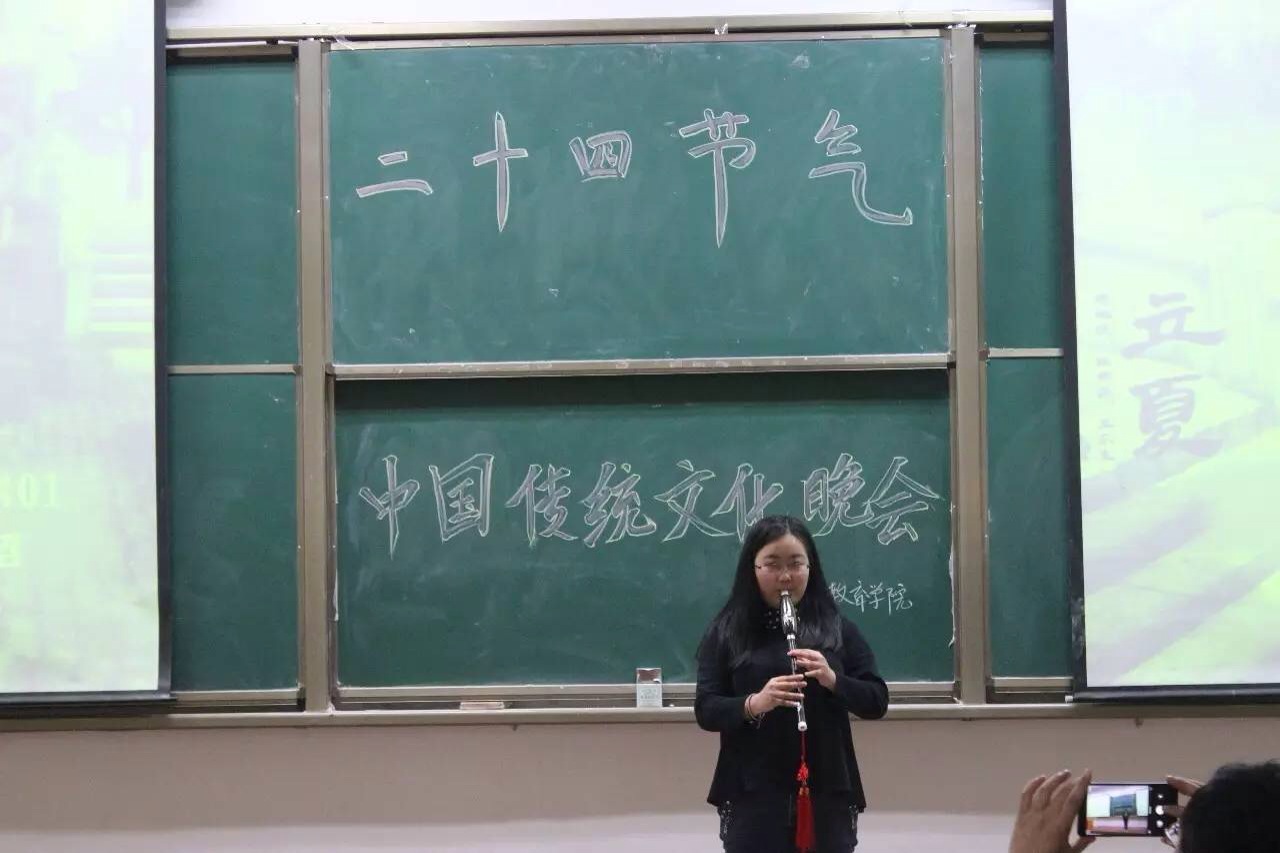 二十四节气
中国传统文化晚会
教育学院
立夏